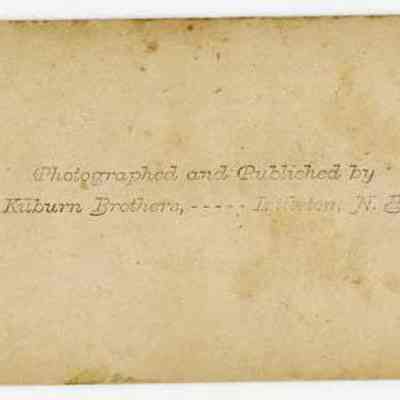 Photographed and Published by
Kilburn Brothers, ----- Littleton, N.